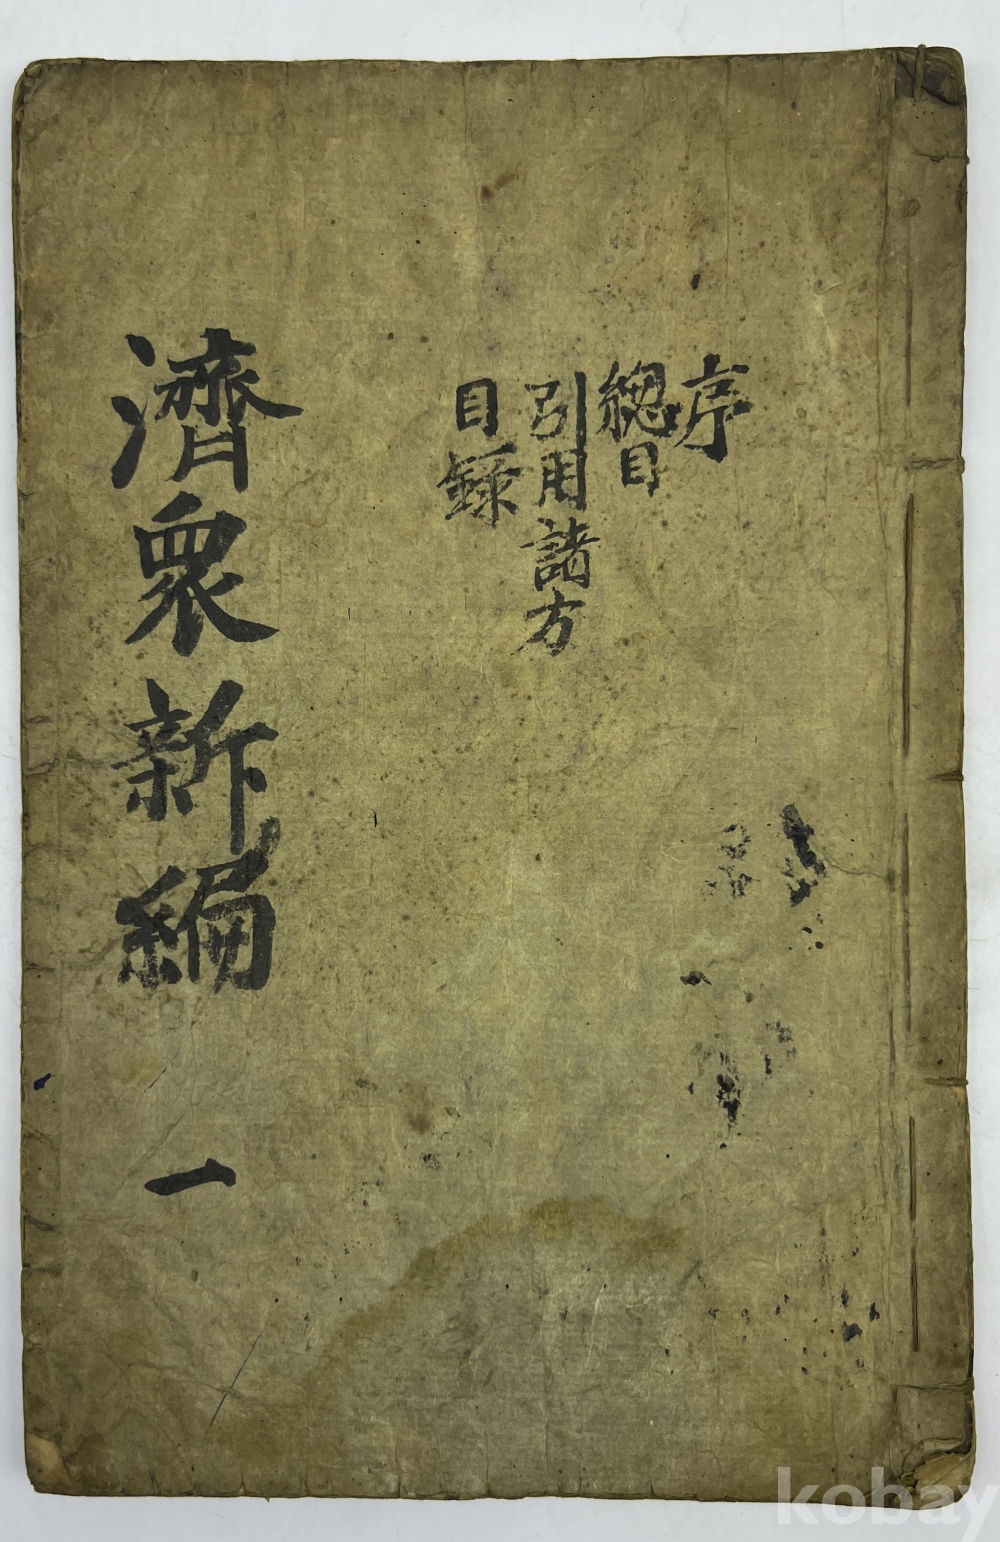 序
總目
引用諸方
目錄
濟衆新編 一
kobay